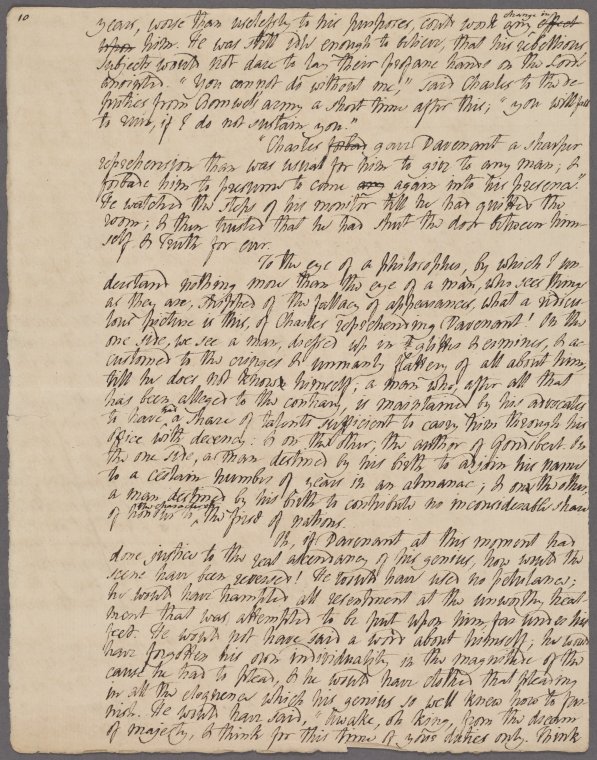 10
years, worse than uselessly to his purposes, could work any change in effect
upon him. He was still idle enough to believe, that his rebellious
subjects would not dare to lay their profane hands on the Lord's
anointed. "You cannot do without me," said Charles to the de-
puties from Cromwel army a short time after this; "you will fall
to ruin, if I do not sustain you."
"Charles forbad gave Davenant a sharper
reprehension than was usual for him to give to any man; &
forbade him to presume to come any again into his presence."
He watched the steps of his monitor till he had quitted the
room; & then trusted that he had shut the door between him-
self & Truth for ever.
To the eye of a philosopher, by which I un-
derstand nothing more than the eye of a man, who sees things
as they are, stripped of the fallacy of appearances, what a ridicu-
lous picture is this, of Charles reprehending Davenant! On the
one side, we see a man, dressed up in & ermines, & ac-
customed to the cringes & unmanly flattery of all about him,
till he does not know himself; a man who, after all that
has been alleged to the contrary, is maintained by his advocates
to have had a share of talents sufficient to carry him through his
office with decency: & on the other, the author of Gondibert. On
the one side, a man destined by his birth to adjoin his name
to a certain number of years in an almanac; & on the other,
a man destined by his birth to contribute no inconsiderable share
of honour to the character of the first of nations.
Oh, if Davenant at this moment had
done justice to the real ascendancy of his genius, how would the
scene have been reversed! He would have used no petulance;
he would have trampled all resentment at the unworthy treat-
ment that was attempted to be put upon him, far under his
feet. He would not have said a word about himself; he would
have forgotten his own individuality in the magnitude of the
cause he had to plead, & he would have clothed that pleading
in all the eloquence which his genius so well knew how to fur-
nish. He would have said, "Awake, oh king, from the dream
of majesty, & think for this time of your duties only. Think